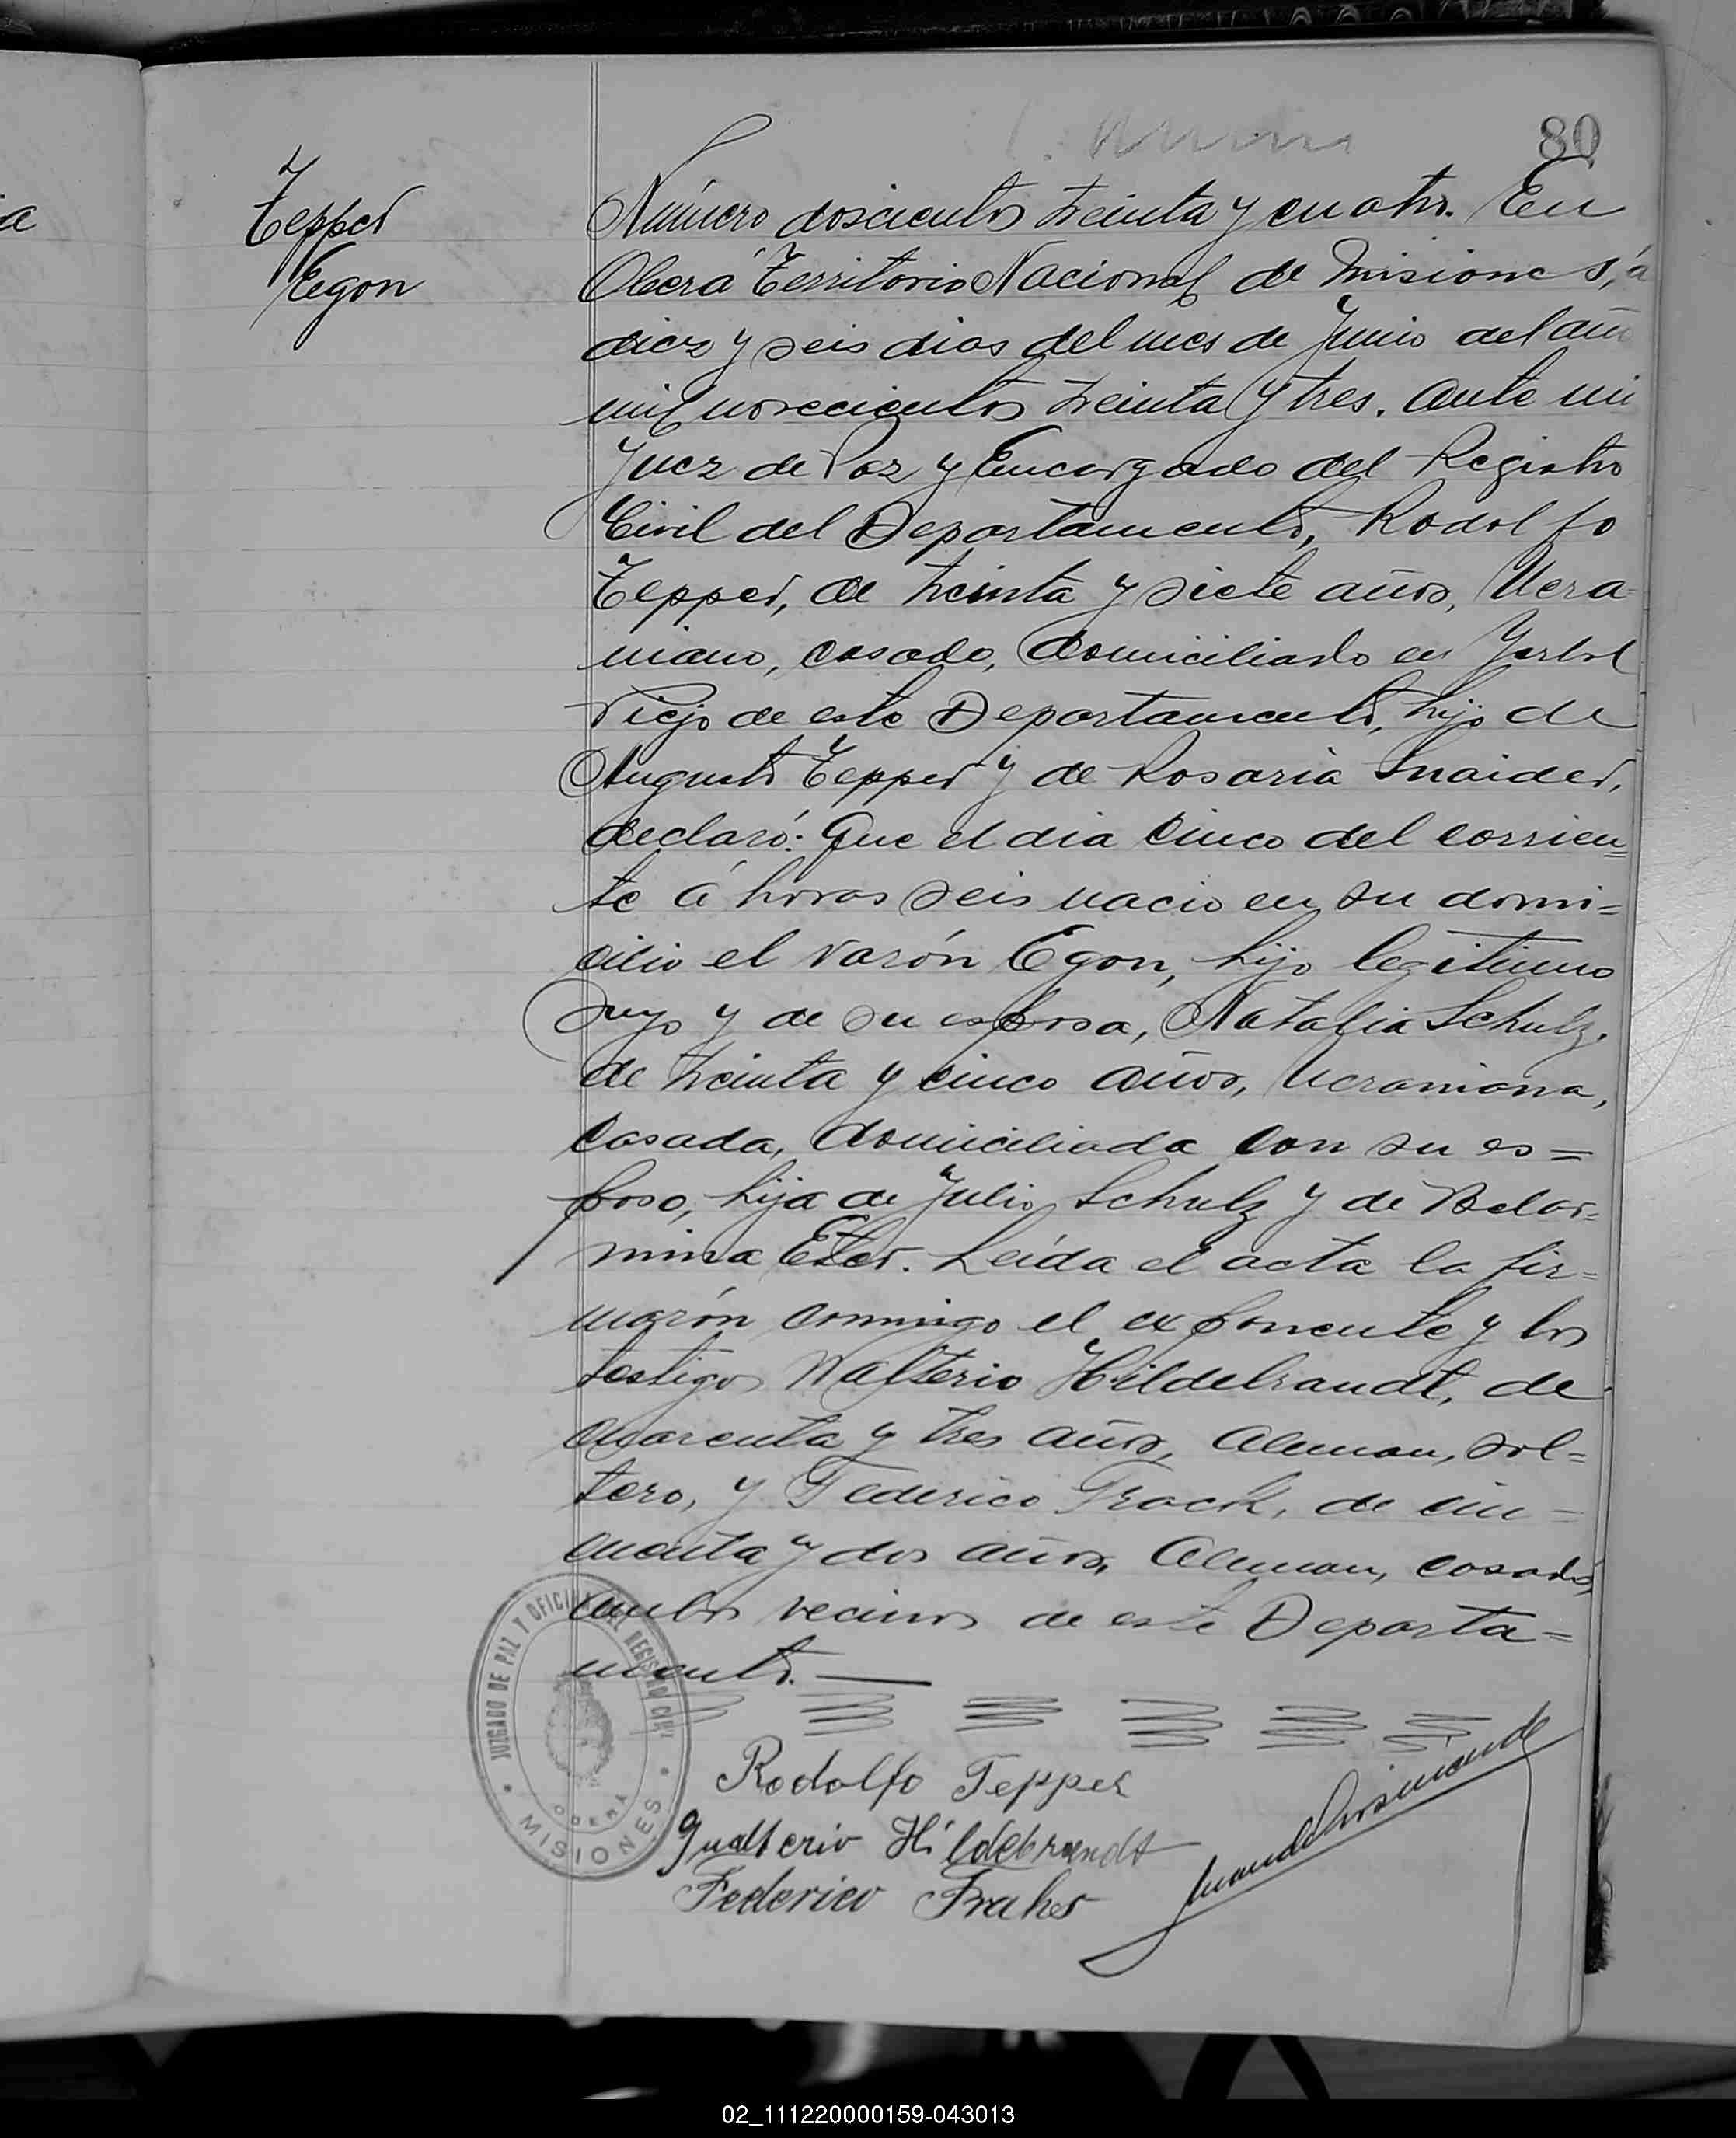 80
Tepper
Egon
Número doscientos treinta y cuatro. En
Oberá Territorio Nacional de Misiones, á
diez y seis dias del mes de Junio del año
mil novecientos treinta y tres. ante mi
Juez de Paz y Encargado del Registro
Civil del Departamento, Rodolfo
Tepper, de treinta y siete años, Ucra-
niano, casado, domiciliado en Yerbal
Viejo de este Departamento, hijo de
Augusto Tepper y de Rosaria Snaider,
declaró: Que el dia cinco del corrien=
te á horas seis nacio en su domi=
cilio el varón Egon, hijo legitimo
suyo y de su esposa, Natalia Schulz.
de treinta y cinco años, Ucraniana,
casada, domiciliada con su es=
poso, hija de Julio Schulz y de Belar=
mina Eter. Leída el acta la fir=
marón conmigo el exponente y los
testigos Walterio Hildebrandt, de
cuarenta y tres años, Aleman, sol=
tero, y Federico Track, de cin=
cuenta y dos años, Aleman, casado,
ambos vecinos de este Departa=
mento.
JUZGADO DE PAZ Y OFICINA DEL REGISTRO CIVIL
OBERÁ
MISIONES
Rodolfo Tepper
Gualterio Hildebrandt
Federico Frahs
02_111220000159-043013